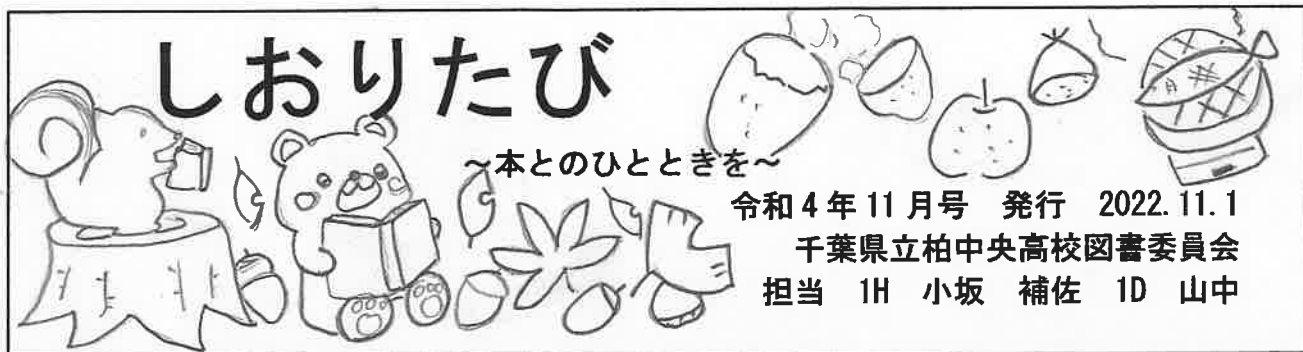 しおりたび
～本とのひとときを～
令和4年11月号 発行 2022.11.1
千葉県立柏中央高校図書委員会
担当 1H 小坂 補佐 1D 山中